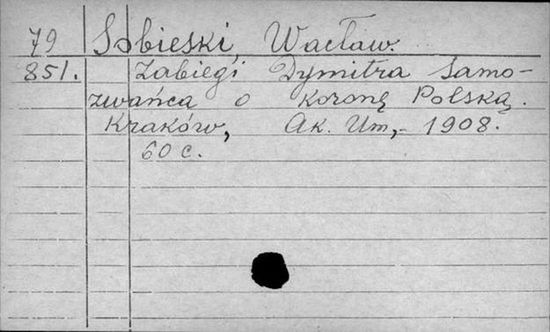 79 Sobieski, Wacław.
851. Zabiegi Dymitra Samo-
zwańca o Koronę Polską.
Kraków, Ak. Um., 1908.
60 c.